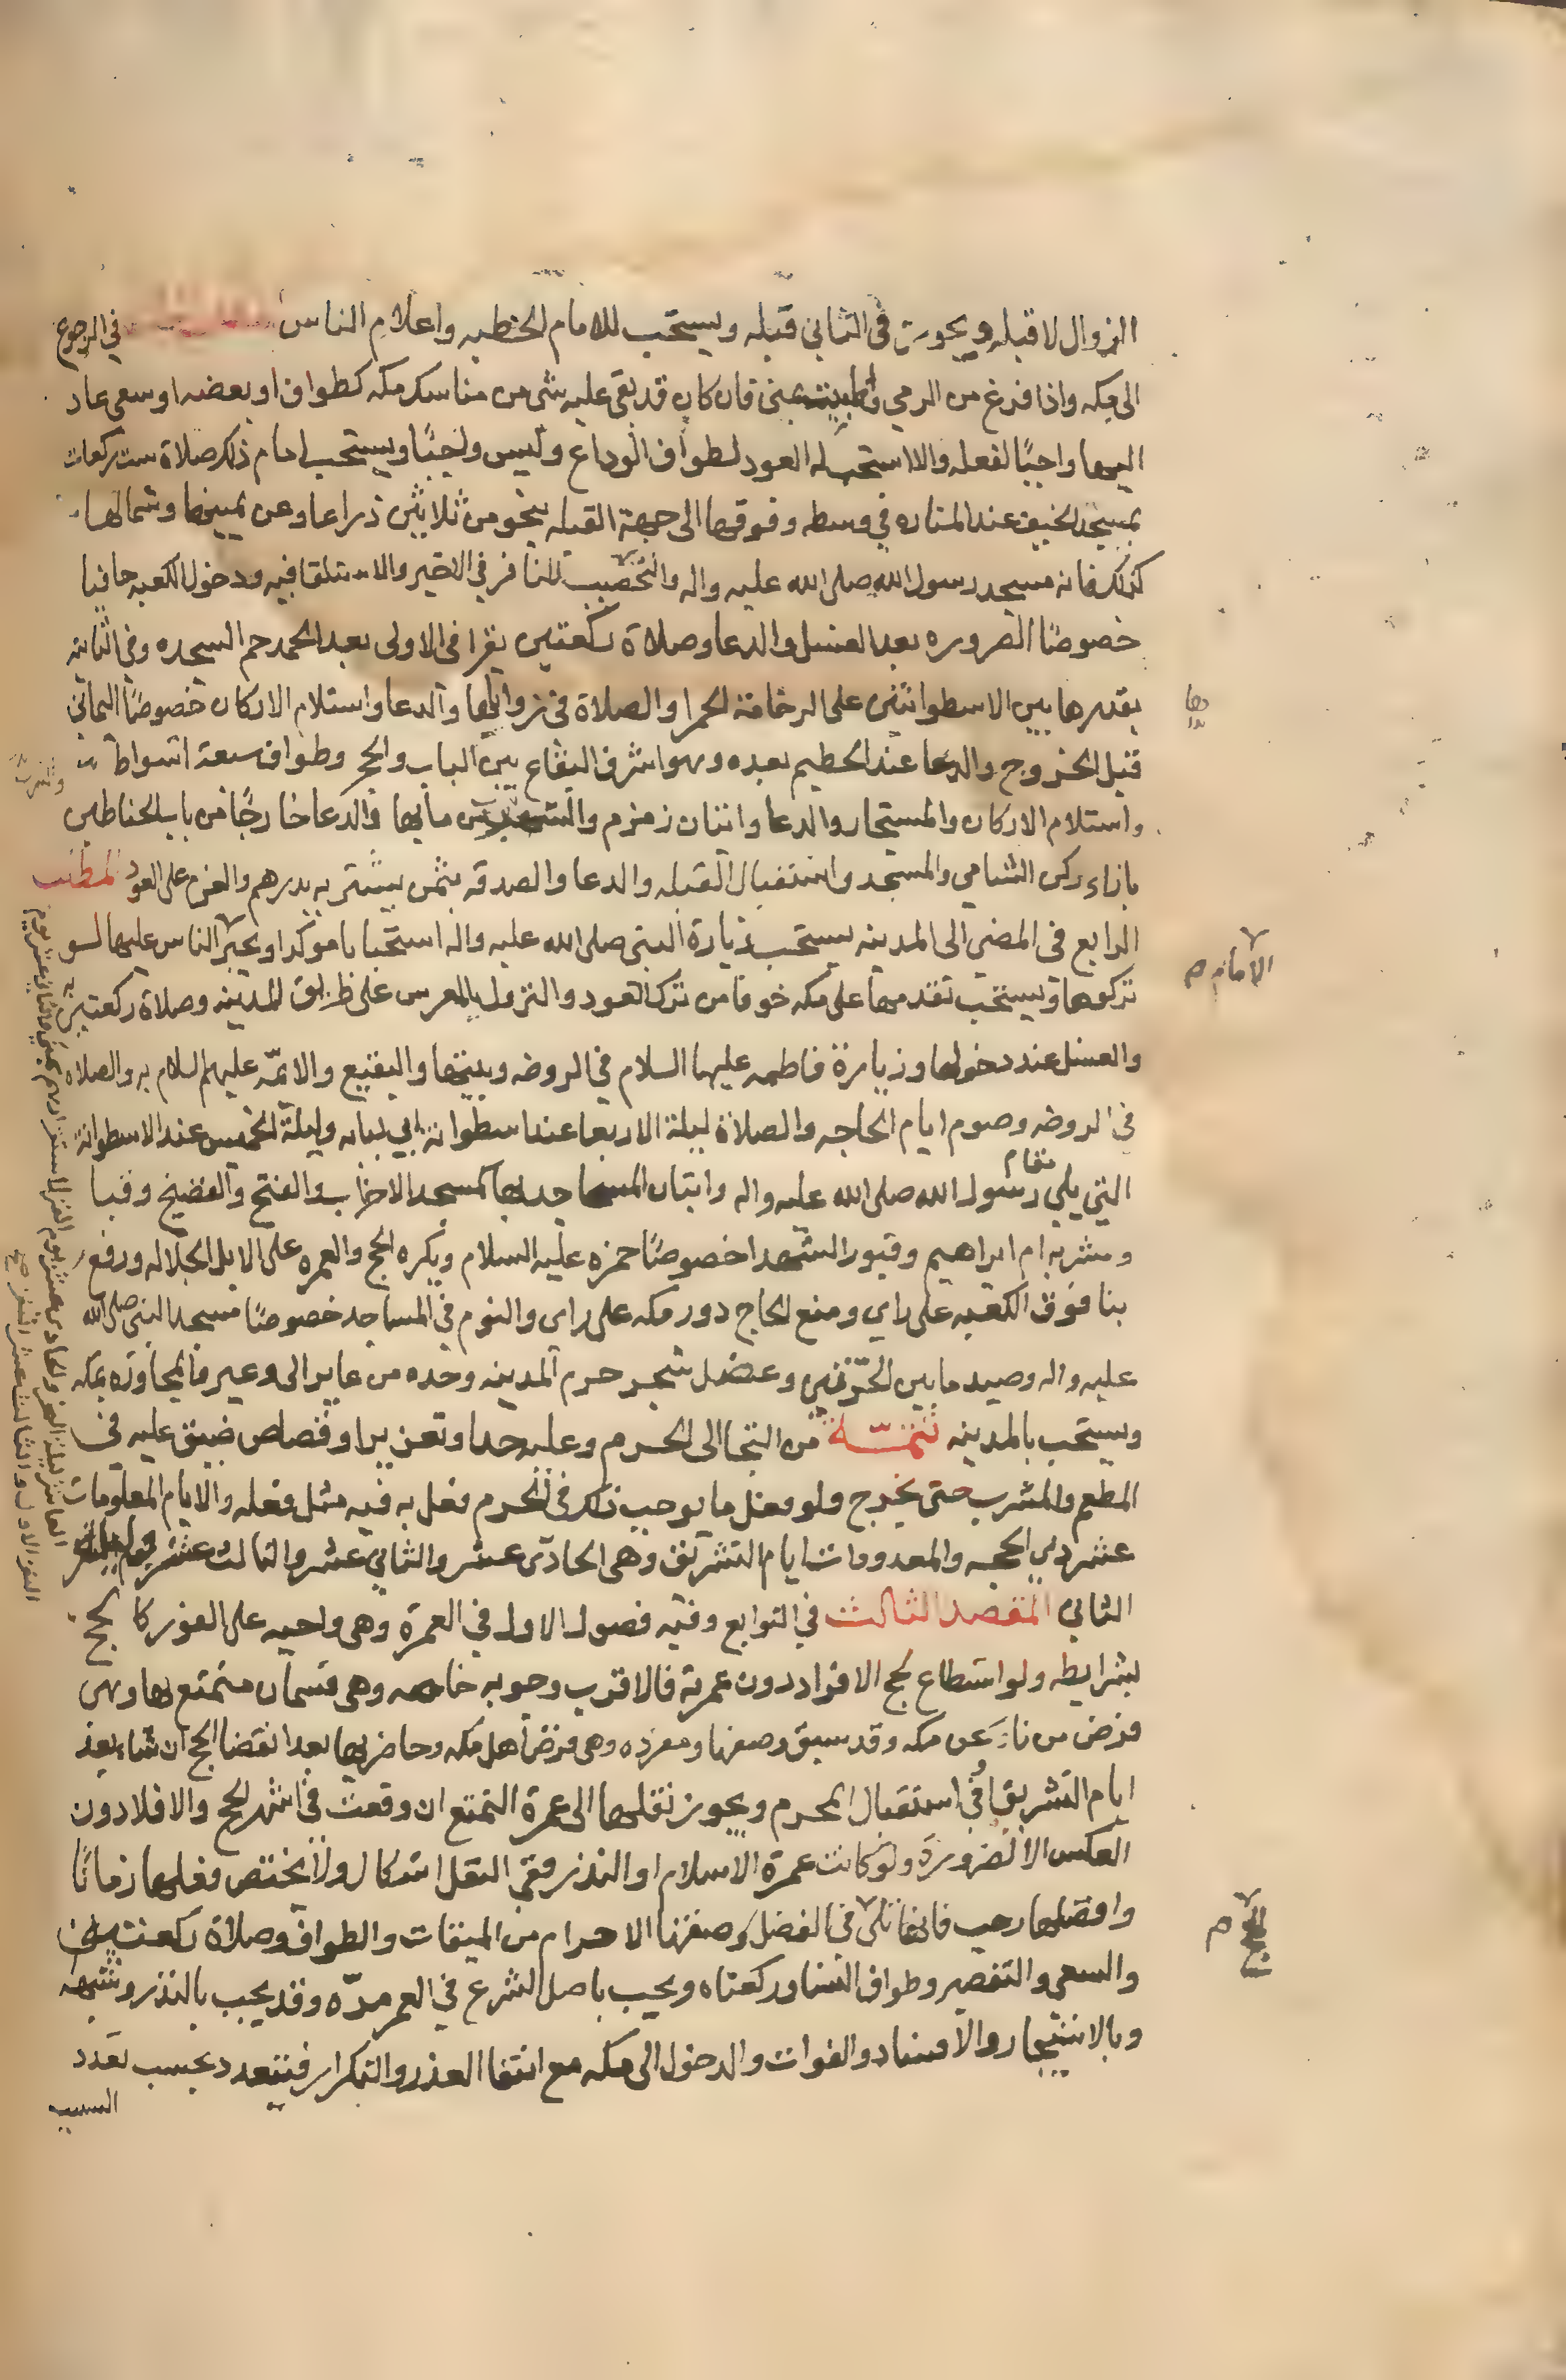 الزوال لا قبله ويجوز في الثاني قبله ويستحب للامام الخطبه واعلام الناس في الرجوع
الى مكه واذا فرغ من الرمي والمبيت بمنى فان كان قد بقى عليه شى من مناسك مكه كطواف او بعضه او سعى عاد
اليها واجبًا لفعله والا استحب له العود لطواف الوداع وليس واجبًا ويستحب امام ذلك صلاة ست ركعات
بمسجد الخيف عند المناره في وسطه وفوقها الى جهة القبله بنحو من ثلاثين ذراعا وعن يمينها وشمالها
كذلك فانه مسجد رسول الله صلى الله عليه واله والتحصيب للنافر في الاخير والاستلقا فيه ودخول الكعبه حافيا
خصوصًا الصروره بعد الغسل والدعا وصلاة ركعتين يقرا في الاولى بعد الحمد حم السجده وفي الثانيه
بقدرها بين الاسطوانتين على الرخامة الحمرا والصلاة في زواياها والدعا واستلام الاركان خصوصًا اليماني
قبل الخروج والدعا عند الحطيم بعده وهو اشرف البقاع بين الباب والحجر وطواف سبعة اشواط
واستلام الاركان والمستجار والدعا واتيان زمزم والشرب من مائها والدعا خارجًا من باب الحناطين
بازاء ركن الشامي والمسجد واستقبال القبله والدعا والصدقه بتمر يشتريه بدرهم والعزم على العود المطلب
الرابع في المضي الى المدينه يستحب زيارة النبى صلى الله عليه واله استحبابا موكدا ويجبر الناس عليها لو
تركوها ويستحب تقدمها على مكه خوفا من ترك العود والنزول بالمعرس على طريق المدينه وصلاة ركعتين به
والغسل عند دخولها وزيارة فاطمه عليها السلام في الروضه وبيتها والبقيع والائمّه عليهم السلام به والصلاه
في الروضه وصوم ايام الحاجه والصلاة ليلة الاربعا عند اسطوانة ابي لبابه وليلة الخميس عند الاسطوانة
التي يلي مقام رسول الله صلى الله عليه واله واتيان المساجد بها كمسجد الاحزاب والفتح والفضيخ وقبا
ومشربه ام ابراهيم وقبور الشهدا خصوصًا حمزه عليه السلام ويكره الحج والعمره على الابل الجلاله ورفع
بنا فوق الكعبه على راي ومنع الحاج دور مكه على راى والنوم في المساجد خصوصًا مسجد النبى صلى الله
عليه واله وصيد ما بين الحرّتين وعضد شجر حرم المدينه وحده من عاير الى وعير والمجاوره بمكه
ويستحب بالمدينه تتمّـة من التجا الى الحرم وعليه حد او تعزير او قصاص ضيق عليه في
المطعم والمشرب حتى يخرج ولو فعل ما يوجب ذلك في الحرم فعل به فيه مثل فعله والايام المعلومات
عشر ذي الحجه والمعدودات ايام التشريق وهى الحادى عشر والثاني عشر والثالث عشر
الثاني المقصد الثالث في التوابع وفيه فصول الاول في العمرة وهى واجبه على الفور كالحج
بشرايطه ولو استطاع لحج الافراد دون عمرته فالاقرب وجوبه خاصه وهى قسمان متمتع بها وهى
فرض من نأى عن مكه وقد سبق وصفها ومفرده وهى فرض اهل مكه وحاضريها بعد انقضا الحج ان شاء بعد
ايام التشريق او في استقبال المحرم ويجوز نقلها الى عمرة التمتع ان وقعت في اشهر الحج والا فلا دون
العكس الا لضرورة ولو كانت عمرة الاسلام او النذر ففي النقل اشكال ولا يختص فعلها زمانًا
وافضلها رجب فانها تلى في الفضل وصفتها الاحرام من الميقات والطواف وصلاة ركعتين
والسعى والتقصير وطواف النسا وركعتاه ويجب باصل الشرع في العمر مرّه وقد يجب بالنذر وشبهه
وبالاستيجار والافساد والفوات والدخول الى مكه مع انتفا العذر والتكرار فتتعدد بحسب تعدد
السبب
الامام صح
الحج